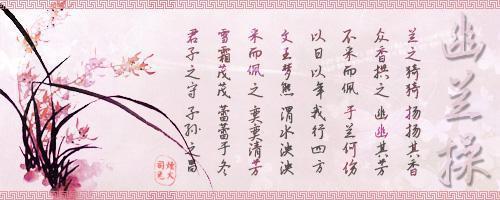 幽兰操
兰之猗猗 扬扬其香
众香拱之 幽幽其芳
不采而佩 于兰何伤
以日以年 我行四方
文王梦熊 渭水泱泱
采而佩之 奕奕清芳
雪霜茂茂 蕾蕾于冬
君子之守 子孙之昌